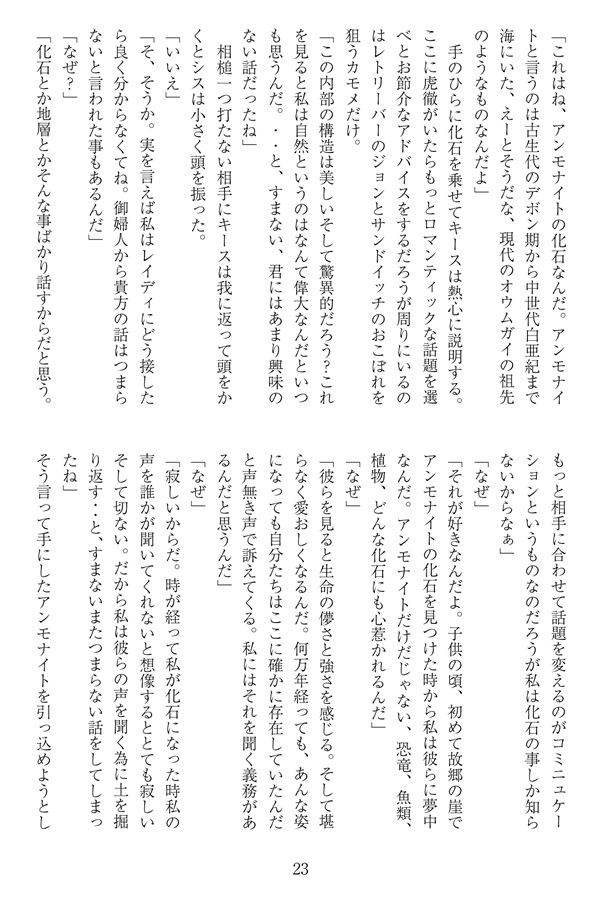 「これはね、アンモナイトの化石なんだ。アンモナイ
トと言うのは古生代のデボン期から中世代白亜紀まで
海にいた、えーとそうだな、現代のオウムガイの祖先
のようなものなんだよ」
手のひらに化石を乗せてキースは熱心に説明する。
ここに虎徹がいたらもっとロマンティックな話題を選
べとお節介なアドバイスをするだろうが周りにいるの
はレトリーバーのジョンとサンドイッチのおこぼれを
狙うカモメだけ。
「この内部の構造は美しいそして驚異的だろう？これ
を見ると私は自然というのはなんて偉大なんだといつ
も思うんだ。・・と、すまない、君にはあまり興味の
ない話だったね」
相槌一つ打たない相手にキースは我に返って頭をか
くとシスは小さく頭を振った。
「いいえ」
「そ、そうか。実を言えば私はレイディにどう接した
ら良く分からなくてね。御婦人から貴方の話はつまら
ないと言われた事もあるんだ」
「なぜ？」
「化石とか地層とかそんな事ばかり話すからだと思う。
もっと相手に合わせて話題を変えるのがコミニュケー
ションというものなのだろうが私は化石の事しか知ら
ないからなぁ」
「なぜ」
「それが好きなんだよ。子供の頃、初めて故郷の崖で
アンモナイトの化石を見つけた時から私は彼らに夢中
なんだ。アンモナイトだけだじゃない、恐竜、魚類、
植物、どんな化石にも心惹かれるんだ」
「なぜ」
「彼らを見ると生命の儚さと強さを感じる。そして堪
らなく愛おしくなるんだ。何万年経っても、あんな姿
になっても自分たちはここに確かに存在していたんだ
と声無き声で訴えてくる。私にはそれを聞く義務があ
るんだと思うんだ」
「なぜ」
「寂しいからだ。時が経って私が化石になった時私の
声を誰かが聞いてくれないと想像するととても寂しい
そして切ない。だから私は彼らの声を聞く為に土を掘
り返す・・と、すまないまたつまらない話をしてしまっ
たね」
そう言って手にしたアンモナイトを引っ込めようとし
23